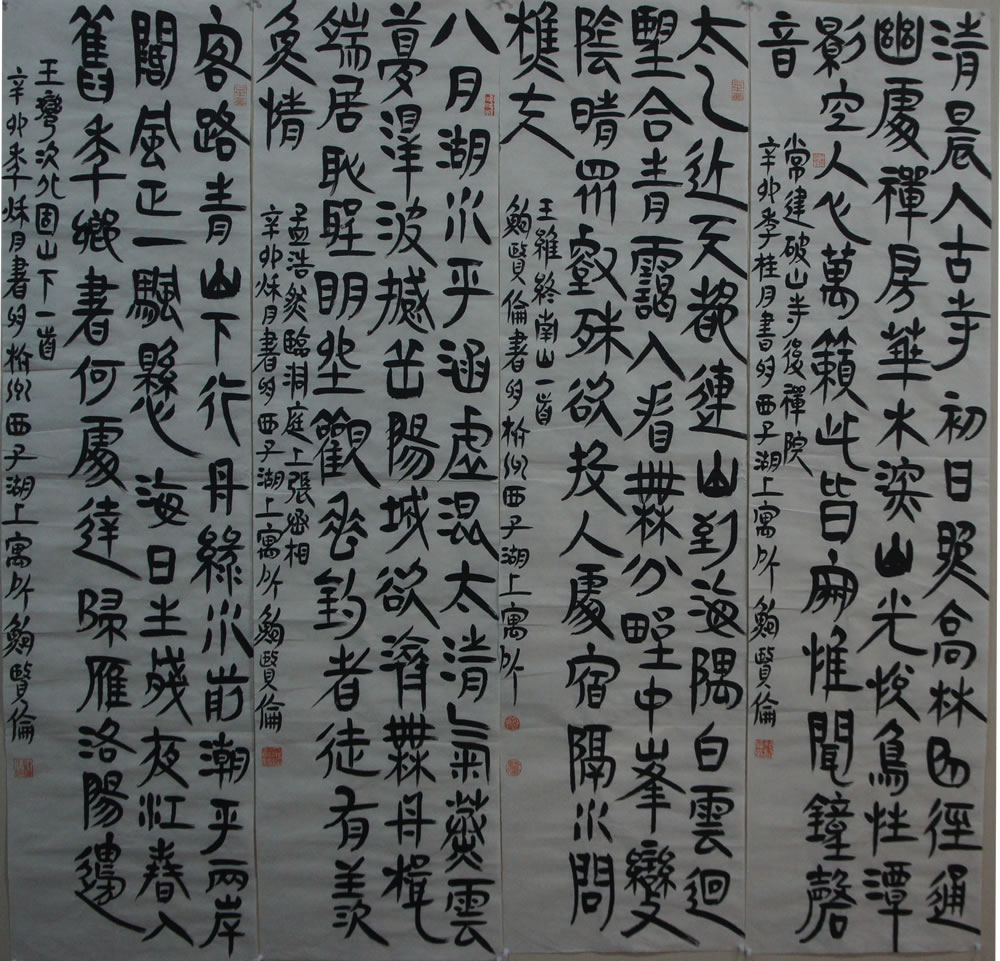 清晨入古寺初日照高林曲徑通
幽處禪房華木深山光悅鳥性潭
影空人心萬籟此皆寂惟聞鐘磬
音
常建破山寺後禪院
辛卯年桂月書於西子湖上寓所鮑賢倫
太乙近天都連山到海隅白雲迴
望合青靄入看無分野中峯變
陰晴眾壑殊欲投人處宿隔水問
樵夫
王維終南山一首
鮑賢倫書於杭州西子湖上寓所
八月湖水平涵虛混太清氣蒸雲
夢澤波撼岳陽城欲濟無舟楫
端居恥聖明坐觀垂釣者徒有羨
魚情
孟浩然臨洞庭上張丞相
辛卯秋月書於西子湖上寓所鮑賢倫
客路青山下行舟綠水前潮平兩岸
闊風正一颿懸海日生殘夜江春入
舊年鄉書何處達歸雁洛陽邊
王灣次北固山下一首
辛卯年秋月書於杭州西子湖上寓所鮑賢倫